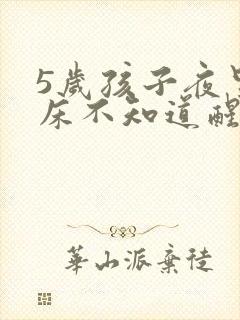 5歲孩子夜
床不知道醒
華山派棄徒